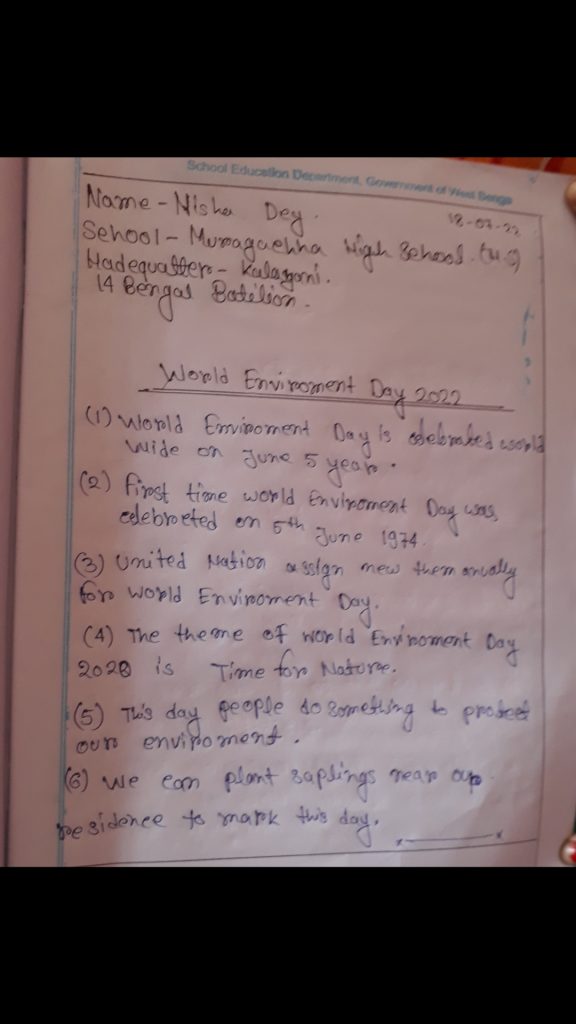 School Education Department, Government of West Benga
18-07-22
Name - Nisha Dey.
School - Muragachha High School. (H.S)
Hadequatters - Kalayani.
14 Bengal Batilion.
World Enviroment Day 2022
(1) World Enviroment Day is celebrated world
wide on June 5 year.
(2) First time world Enviroment Day was
celebrated on 5th June 1974.
(3) United Nation assign new them anually
for World Enviroment Day.
(4) The theme of World Enviroment Day
2020 is Time for Nature.
(5) This day people do something to protect
our enviroment.
(6) We can plant saplings near our
residence to mark this day.